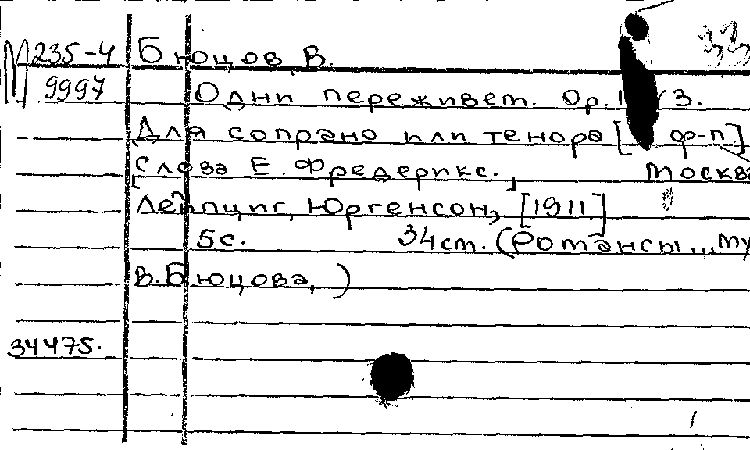 М 235-4 Бюцов В. 33
9997 Одни переживет. Op. 3.
Для сопрано или тенора [ ф-п]
[Слова Е. Фредерикс.] Москва
Лейпциг, Юргенсон, [1911]
5с. 34см. (Романсы... му
В. Бюцова,)
34475.